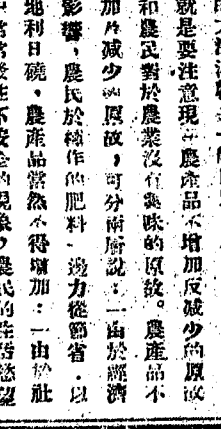 就是要注意現在農產品不增加反減少的原故
和農民對於農業沒有興味的原故。農產品不
加反減少的原故，可分兩層說：一由於經濟
影響，農民於種作的肥料，遂力從節省，以
地利日磽，農產品當然不得增加：一由於社
不安全的現象，農民的